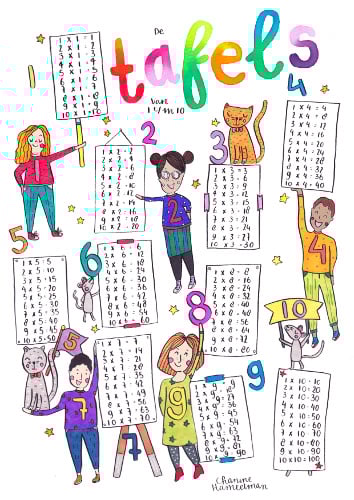 De
tafels
van
1 t/m 10
1
1 x 1 = 1
2 x 1 = 2
3 x 1 = 3
4 x 1 = 4
5 x 1 = 5
6 x 1 = 6
7 x 1 = 7
8 x 1 = 8
9 x 1 = 9
10 x 1 = 10
2
1 x 2 = 2
2 x 2 = 4
3 x 2 = 6
4 x 2 = 8
5 x 2 = 10
6 x 2 = 12
7 x 2 = 14
8 x 2 = 16
9 x 2 = 18
10 x 2 = 20
2
3
1 x 3 = 3
2 x 3 = 6
3 x 3 = 9
4 x 3 = 12
5 x 3 = 15
6 x 3 = 18
7 x 3 = 21
8 x 3 = 24
9 x 3 = 27
10 x 3 = 30
4
1 x 4 = 4
2 x 4 = 8
3 x 4 = 12
4 x 4 = 16
5 x 4 = 20
6 x 4 = 24
7 x 4 = 28
8 x 4 = 32
9 x 4 = 36
10 x 4 = 40
4
5
1 x 5 = 5
2 x 5 = 10
3 x 5 = 15
4 x 5 = 20
5 x 5 = 25
6 x 5 = 30
7 x 5 = 35
8 x 5 = 40
9 x 5 = 45
10 x 5 = 50
5
6
1 x 6 = 6
2 x 6 = 12
3 x 6 = 18
4 x 6 = 24
5 x 6 = 30
6 x 6 = 36
7 x 6 = 42
8 x 6 = 48
9 x 6 = 54
10 x 6 = 60
7
1 x 7 = 7
2 x 7 = 14
3 x 7 = 21
4 x 7 = 28
5 x 7 = 35
6 x 7 = 42
7 x 7 = 49
8 x 7 = 56
9 x 7 = 63
10 x 7 = 70
7
8
1 x 8 = 8
2 x 8 = 16
3 x 8 = 24
4 x 8 = 32
5 x 8 = 40
6 x 8 = 48
7 x 8 = 56
8 x 8 = 64
9 x 8 = 72
10 x 8 = 80
9
9
1 x 9 = 9
2 x 9 = 18
3 x 9 = 27
4 x 9 = 36
5 x 9 = 45
6 x 9 = 54
7 x 9 = 63
8 x 9 = 72
9 x 9 = 81
10 x 9 = 90
10
1 x 10 = 10
2 x 10 = 20
3 x 10 = 30
4 x 10 = 40
5 x 10 = 50
6 x 10 = 60
7 x 10 = 70
8 x 10 = 80
9 x 10 = 90
10 x 10 = 100